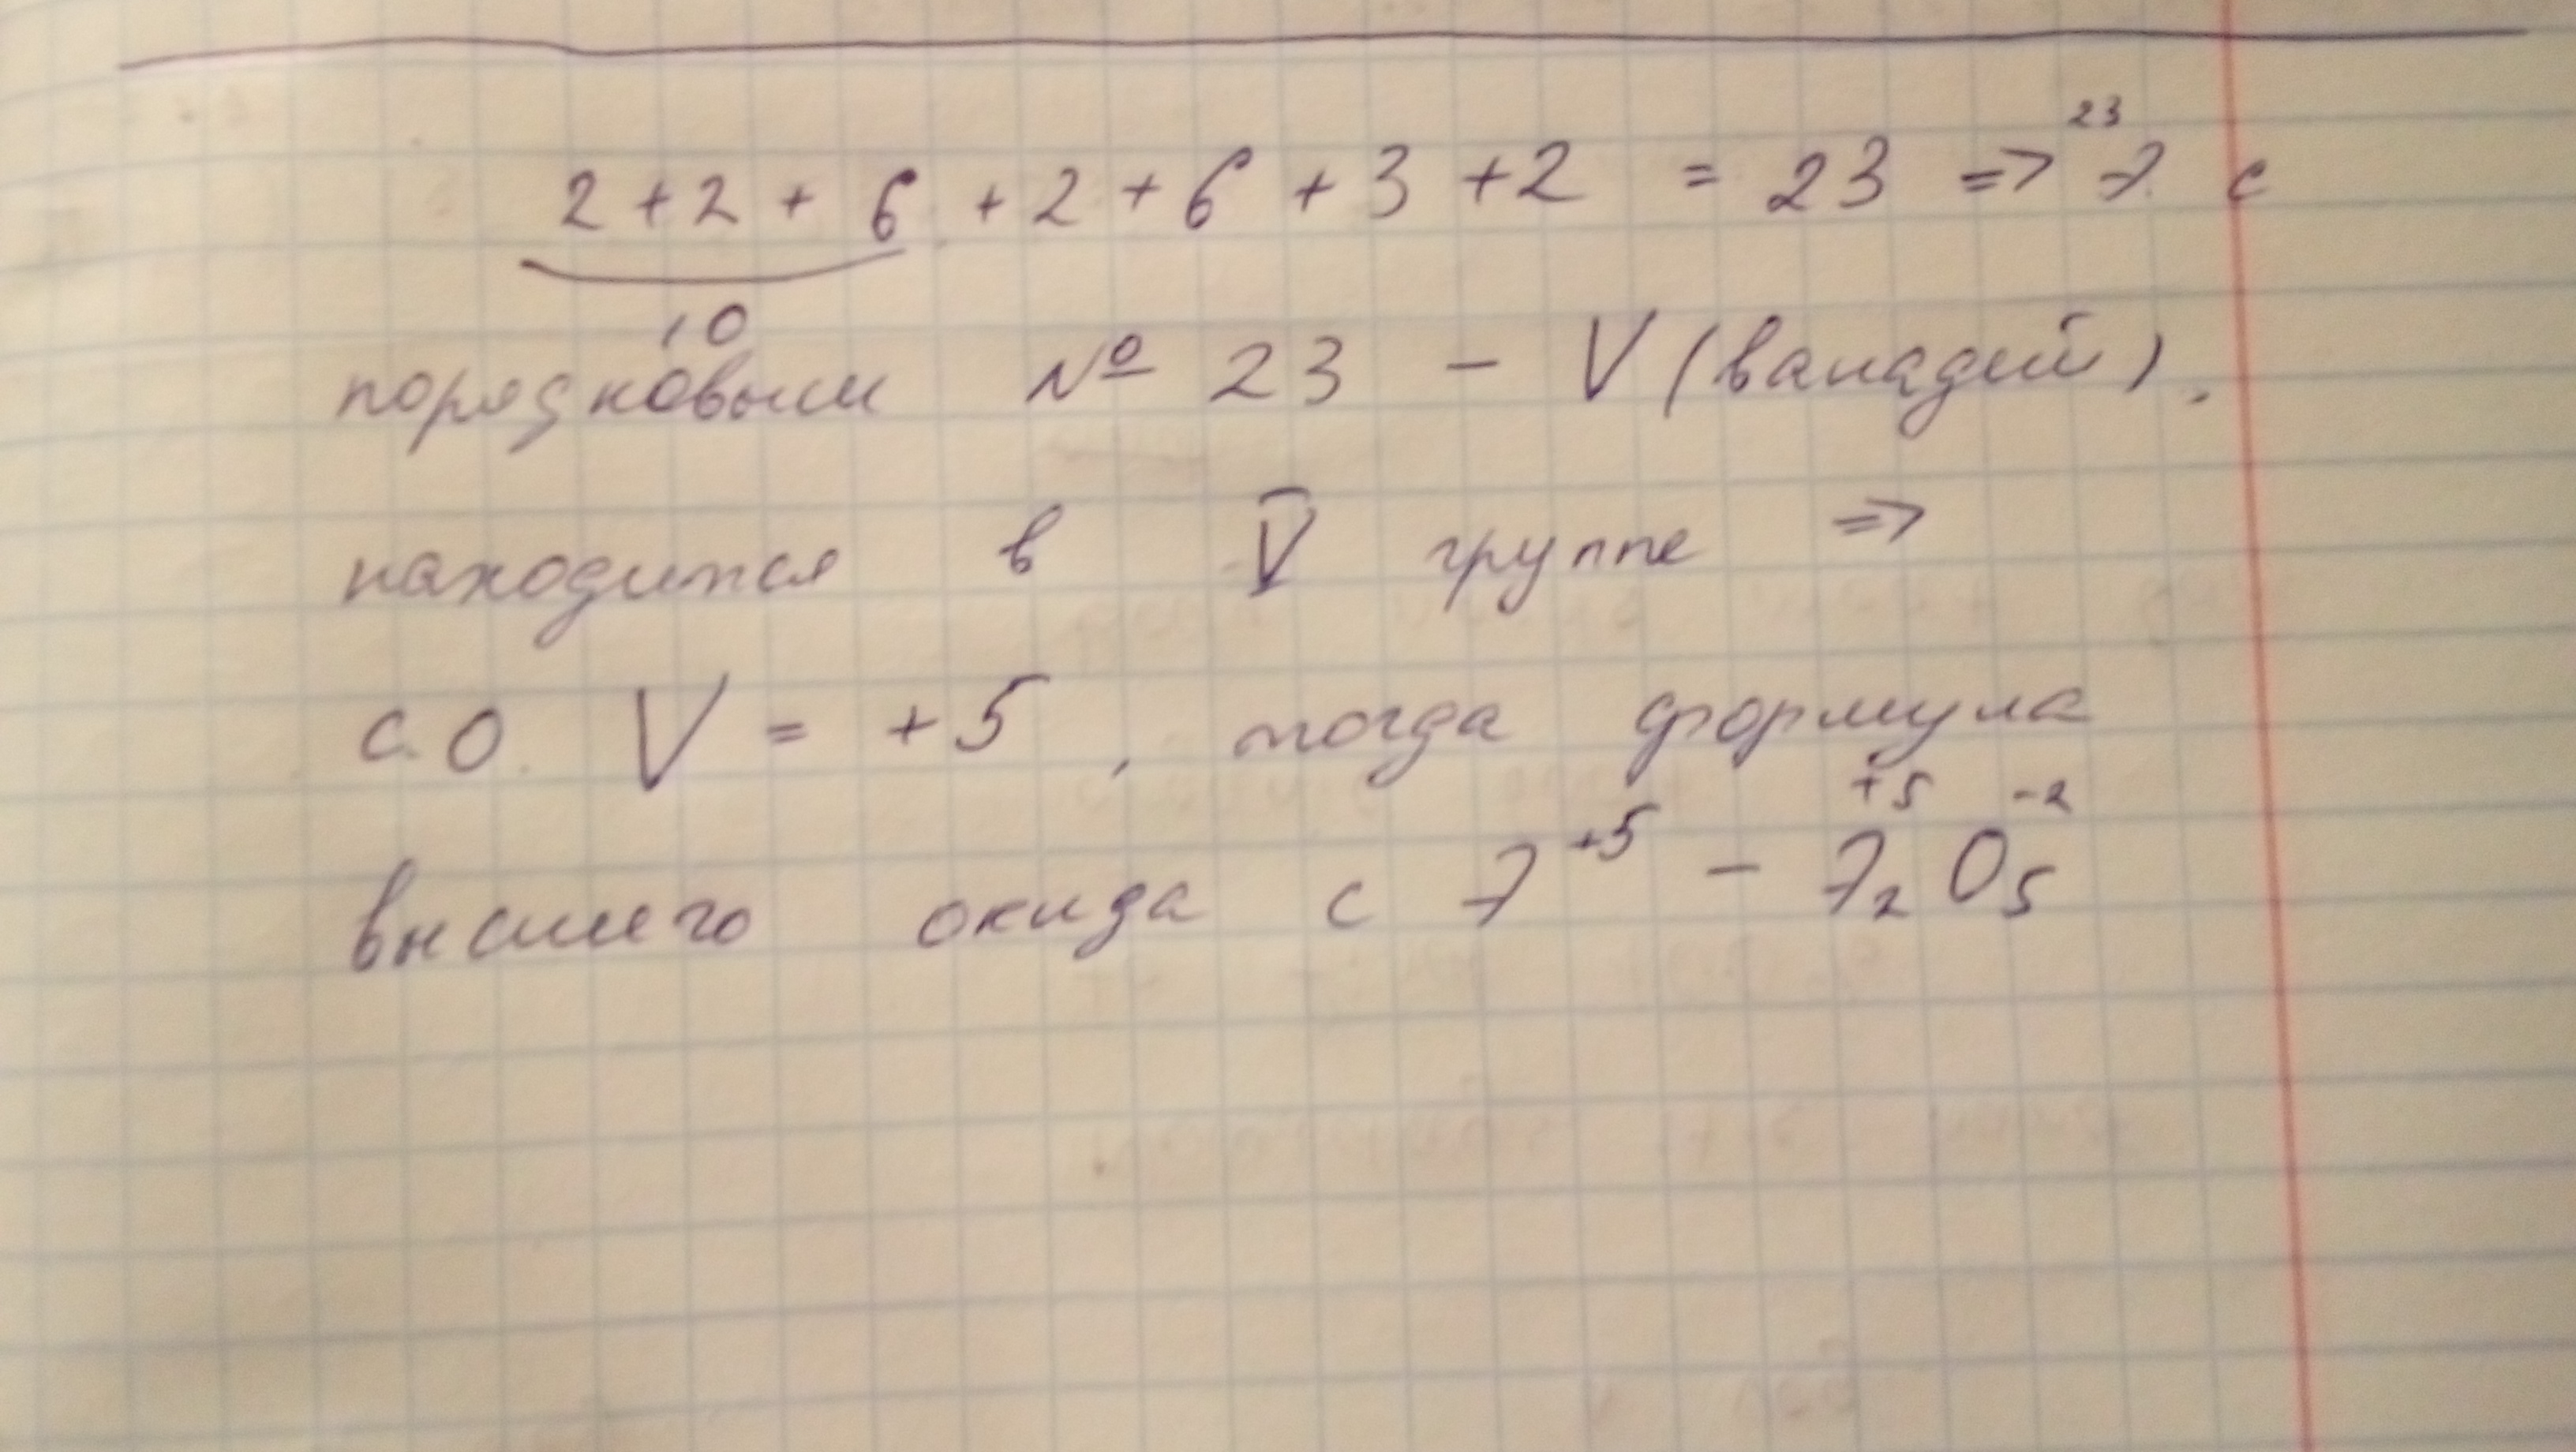 2 + 2 + 6 + 2 + 6 + 3 + 2 = 23 => ²³Э с
10
порядковым № 23 - V (ванадий).
находится в V группе =>
с.о. V = +5, тогда формула
высшего оксида с Э⁺⁵ - Э₂⁺⁵O₅⁻²